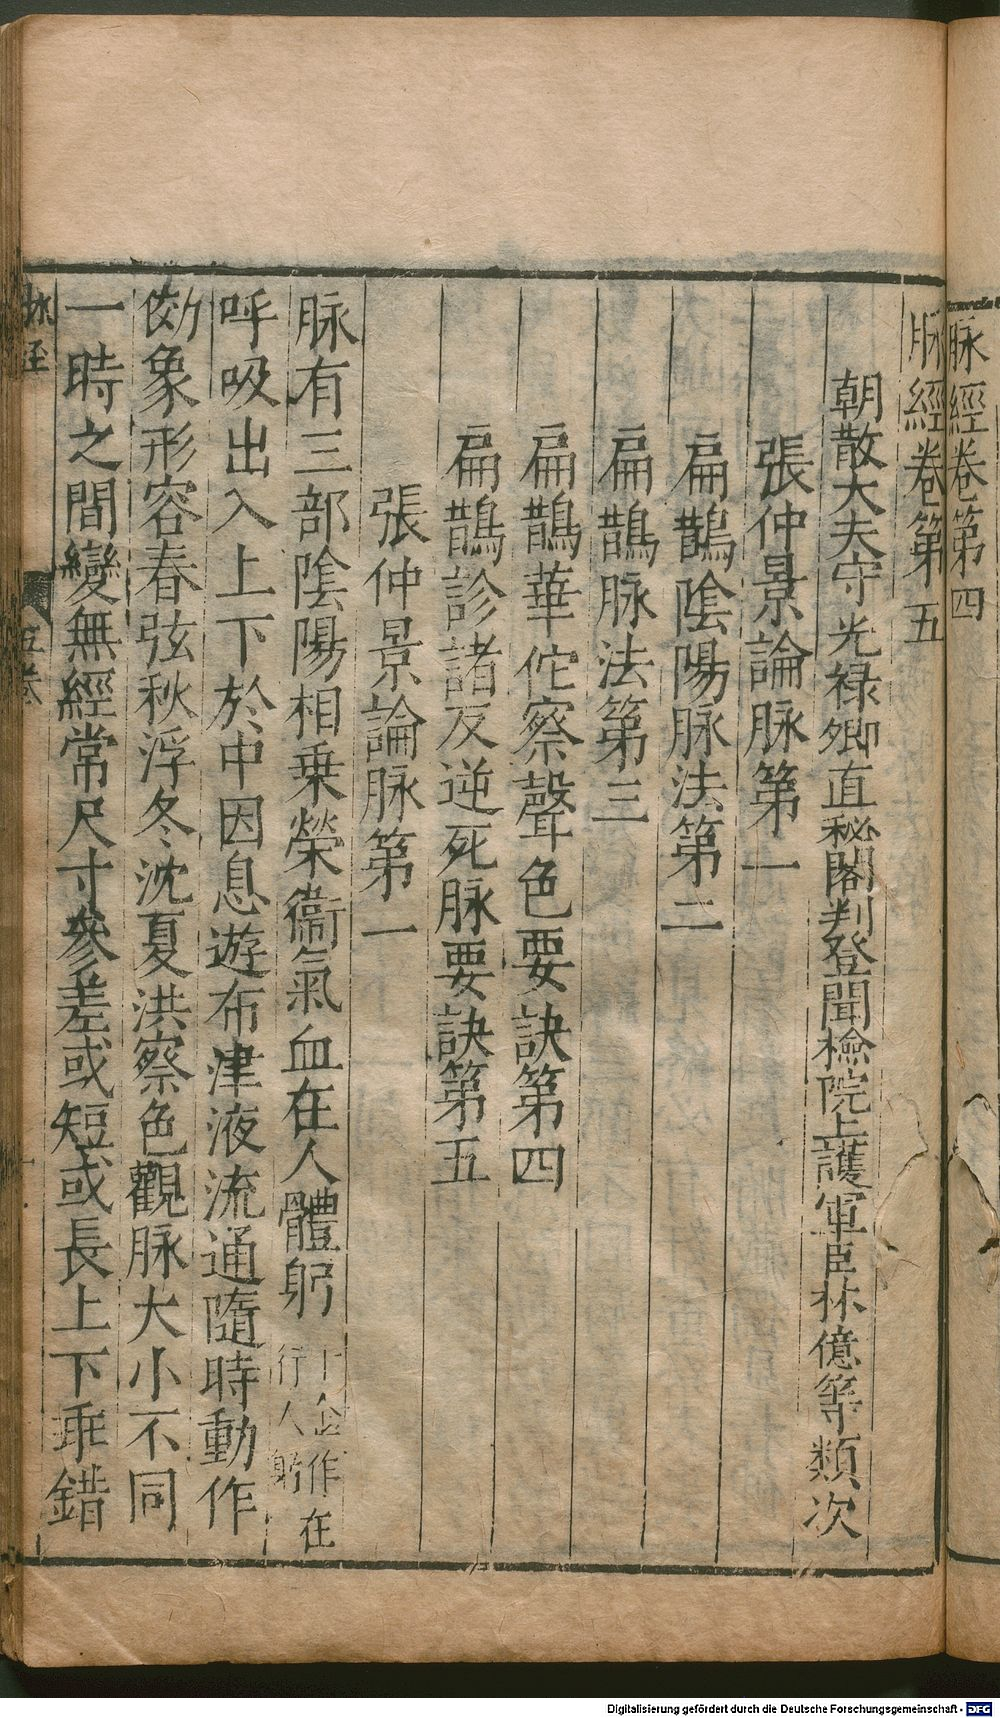 脉經卷第四
脉經卷第五
朝散大夫守光禄卿直秘閣判登聞檢院上護軍臣林億等類次
張仲景論脉第一
扁鵲陰陽脉法第二
扁鵲脉法第三
扁鵲華佗察聲色要訣第四
扁鵲診諸反逆死脉要訣第五
張仲景論脉第一
脉有三部陰陽相乗榮衞氣血在人體躬
作在
行人躬
呼吸出入上下於中因息遊布津液流通隨時動作
傚象形容春弦秋浮冬沈夏洪察色觀脉大小不同
一時之間變無經常尺寸參差或短或長上下乖錯
五卷
Digitalisierung gefördert durch die Deutsche Forschungsgemeinschaft - DFG